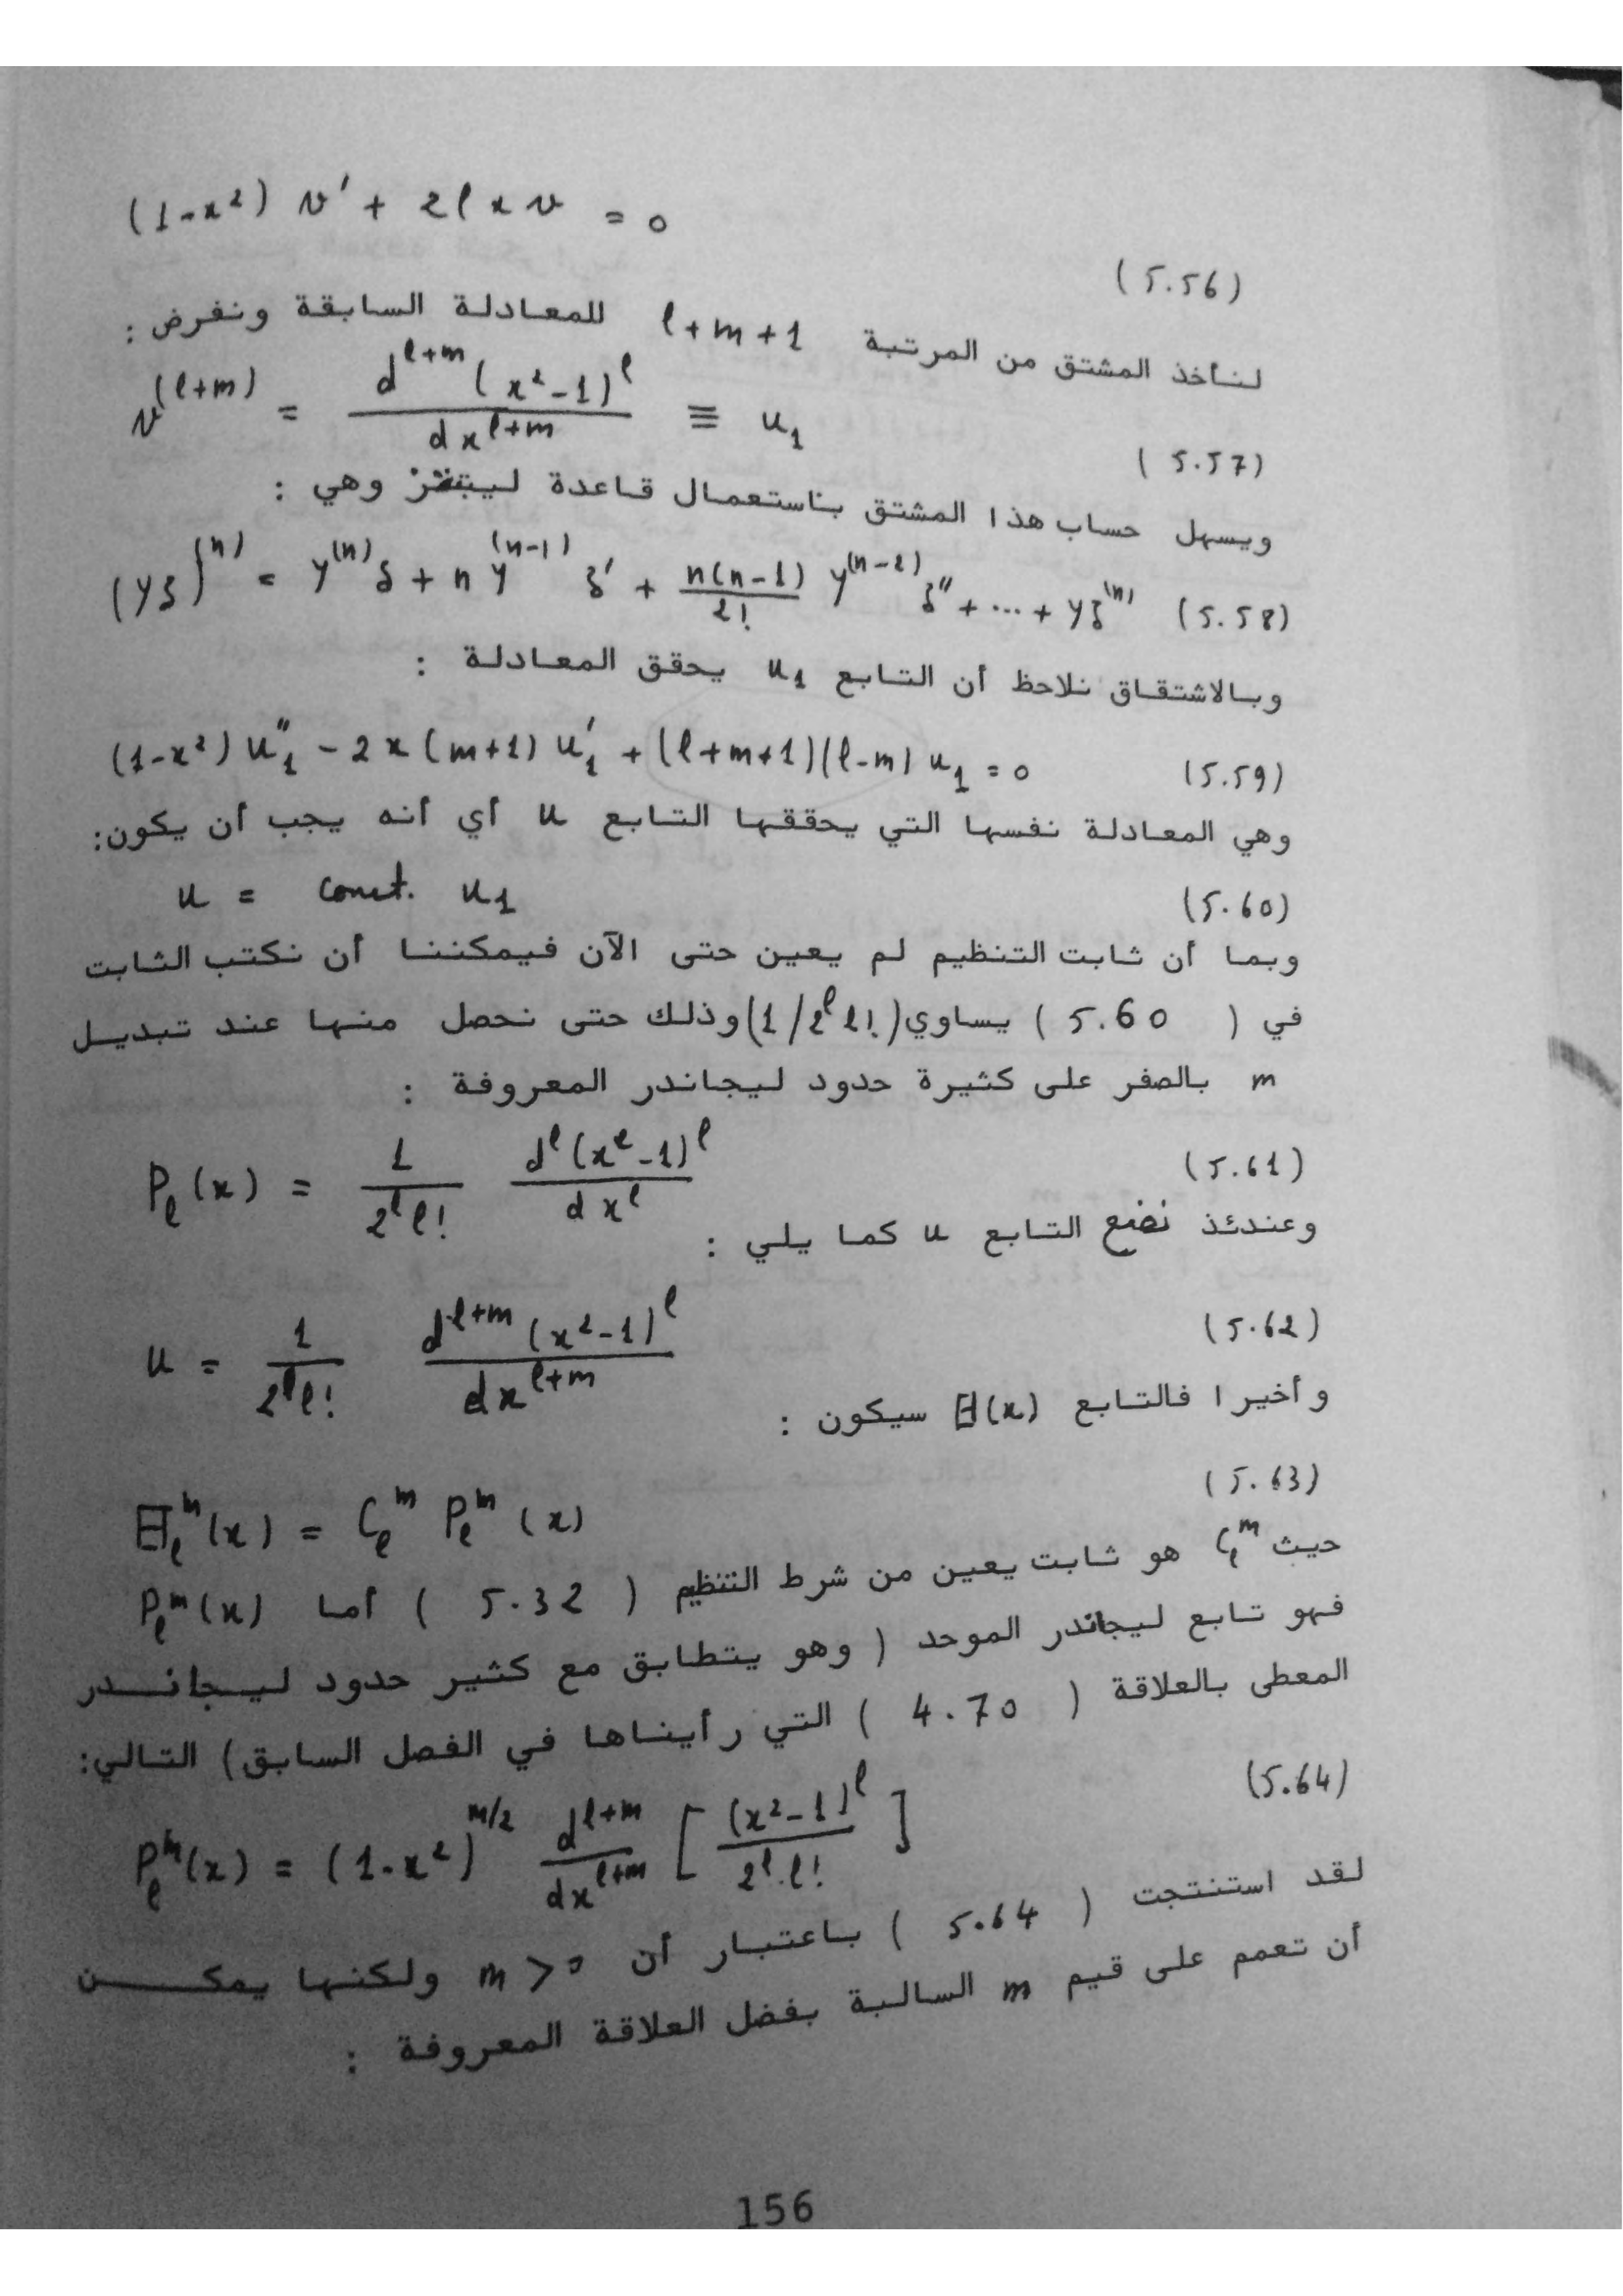 (1-x²) v' + 2ℓ x v = 0
(5.56)
لنأخذ المشتق من المرتبة ℓ+m+1 للمعادلة السابقة ونفرض :
v^(ℓ+m) = d^(ℓ+m) (x²-1)^ℓ / dx^(ℓ+m) ≡ u₁
(5.57)
ويسهل حساب هذا المشتق باستعمال قاعدة ليبتنز وهي :
(yz)^(n) = y^(n) z + n y^(n-1) z' + n(n-1)/2! y^(n-2) z'' + ... + y z^(n) (5.58)
وبالاشتقاق نلاحظ أن التابع u₁ يحقق المعادلة :
(1-x²) u₁'' - 2x (m+1) u₁' + (ℓ+m+1)(ℓ-m) u₁ = 0 (5.59)
وهي المعادلة نفسها التي يحققها التابع u أي أنه يجب أن يكون:
u = const. u₁ (5.60)
وبما أن ثابت التنظيم لم يعين حتى الآن فيمكننا أن نكتب الثابت
في ( 5.60 ) يساوي (1/2^ℓ ℓ!) وذلك حتى نحصل منها عند تبديل
m بالصفر على كثيرة حدود ليجاندر المعروفة :
P_ℓ(x) = 1/(2^ℓ ℓ!) d^ℓ (x²-1)^ℓ / dx^ℓ (5.61)
وعندئذ نضع التابع u كما يلي :
u = 1/(2^ℓ ℓ!) d^(ℓ+m) (x²-1)^ℓ / dx^(ℓ+m) (5.62)
وأخيرا فالتابع Θ(x) سيكون :
(5.63)
Θ_ℓ^m(x) = C_ℓ^m P_ℓ^m (x)
حيث C_ℓ^m هو ثابت يعين من شرط التنظيم ( 5.32 ) أما P_ℓ^m(x)
فهو تابع ليجاندر الموحد ( وهو يتطابق مع كثير حدود ليجاندر
المعطى بالعلاقة ( 4.70 ) التي رأيناها في الفصل السابق) التالي:
(5.64)
P_ℓ^m(x) = (1-x²)^(m/2) d^(ℓ+m)/dx^(ℓ+m) [ (x²-1)^ℓ / 2^ℓ.ℓ! ]
لقد استنتجت ( 5.64 ) باعتبار أن m > 0 ولكنها يمكن
أن تعمم على قيم m السالبة بفضل العلاقة المعروفة :
156